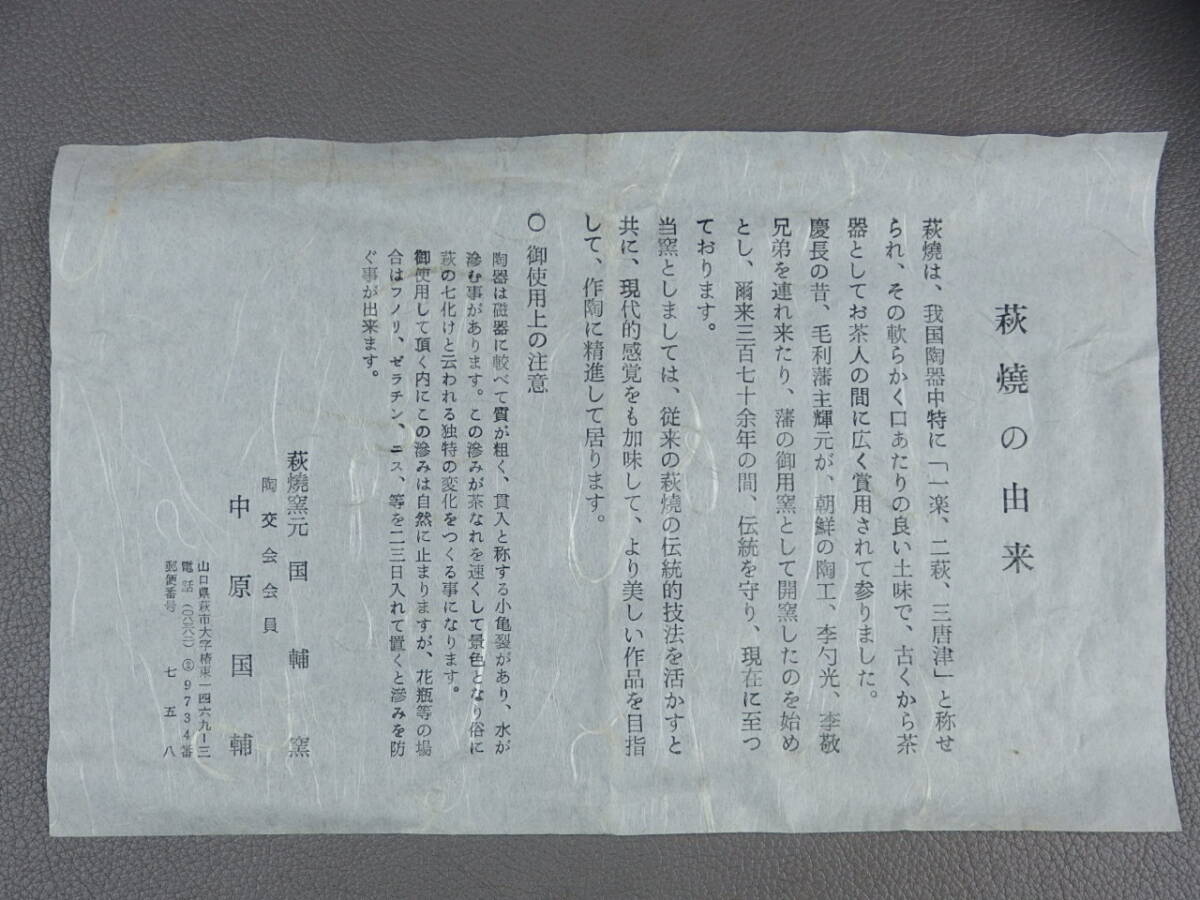 萩焼の由来
萩焼は、我国陶器中特に「一楽、二萩、三唐津」と称せ
られ、その軟らかく口あたりの良い土味で、古くから茶
器としてお茶人の間に広く賞用されて参りました。
慶長の昔、毛利藩主輝元が、朝鮮の陶工、李勺光、李敬
兄弟を連れ来たり、藩の御用窯として開窯したのを始め
とし、爾来三百七十余年の間、伝統を守り、現在に至つ
ております。
当窯としましては、従来の萩焼の伝統的技法を活かすと
共に、現代的感覚をも加味して、より美しい作品を目指
して、作陶に精進して居ります。
○ 御使用上の注意
陶器は磁器に較べて質が粗く、貫入と称する小亀裂があり、水が
滲む事があります。この滲みが茶なれを速くして景色となり俗に
萩の七化けと云われる独特の変化をつくる事になります。
御使用して頂く内にこの滲みは自然に止まりますが、花瓶等の場
合はフノリ、ゼラチン、ニス、等を二三日入れて置くと滲みを防
ぐ事が出来ます。
萩焼窯元 国輔窯
陶交会会員
中原国輔
山口県萩市大字椿東一四六九ー三
電話（〇八三八二）②9734番
郵便番号 七五八